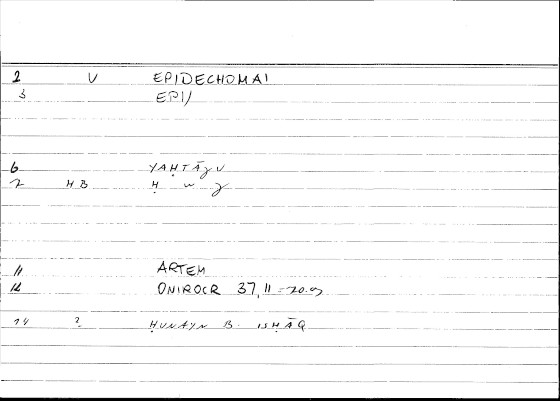 2 V EPIDECHOMAI
3 EPI/
6 YAḤTĀǧU
7 HB Ḥ w ǧ
11 ARTEM
12 ONIROCR 37,11 =
14 ? ḤUNAYN B. ISḤĀQ